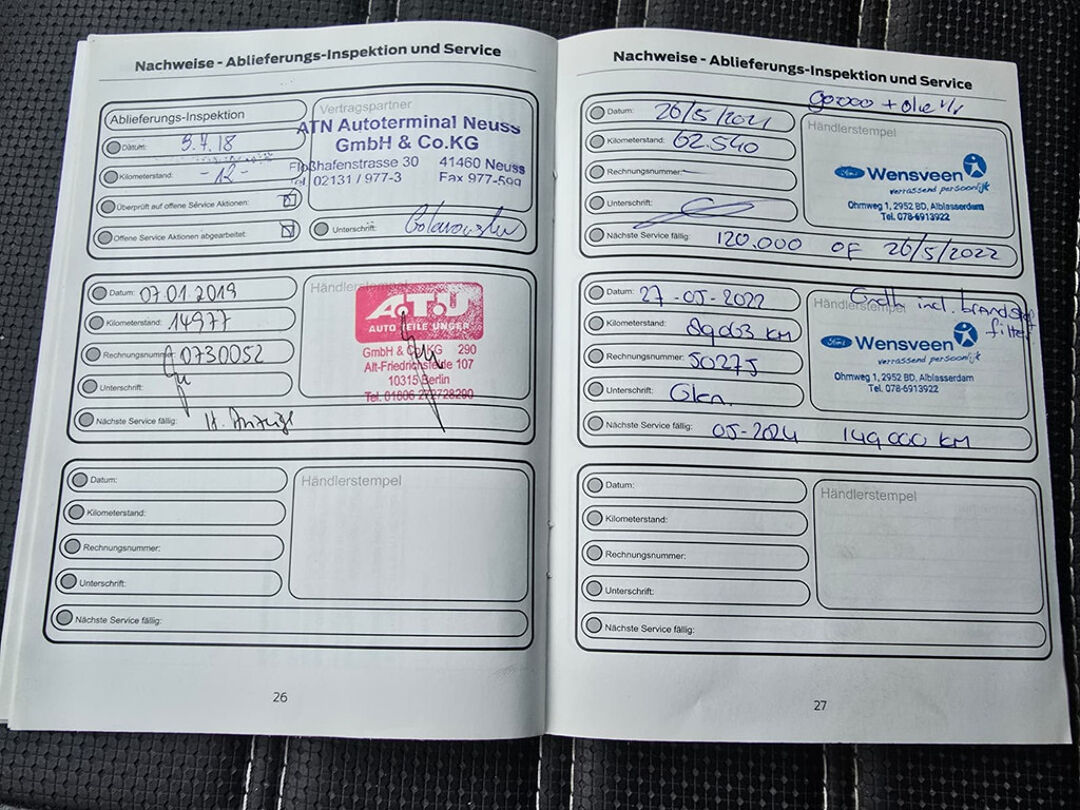 Nachweise - Ablieferungs-Inspektion und Service
Ablieferungs-Inspektion
Datum: 3.4.18
Kilometerstand: -12-
Überprüft auf offene Service Aktionen:
Offene Service Aktionen abgearbeitet:
Vertragspartner
ATN Autoterminal Neuss
GmbH & Co.KG
Floßhafenstrasse 30 41460 Neuss
Tel. 02131 / 977-3 Fax 977-599
Unterschrift:
Datum: 07.01.2019
Kilometerstand: 14977
Rechnungsnummer: 0730052
Unterschrift:
Nächste Service fällig: lt. Anzeige
Händlerstempel
A.T.U
AUTO TEILE UNGER
GmbH & Co. KG 290
Alt-Friedrichsfelde 107
10315 Berlin
Tel. 01806
Datum:
Kilometerstand:
Rechnungsnummer:
Unterschrift:
Nächste Service fällig:
Händlerstempel
26
Nachweise - Ablieferungs-Inspektion und Service
90000 + olie
Datum: 26/5/2021
Kilometerstand: 62.540
Rechnungsnummer:
Unterschrift:
Nächste Service fällig: 120.000 OF 26/5/2022
Händlerstempel
Ford Wensveen
verrassend persoonlijk
Ohmweg 1, 2952 BD, Alblasserdam
Tel. 078-6913922
Datum: 27-05-2022
Kilometerstand: 89003 KM
Rechnungsnummer: 50275
Unterschrift: Glen.
Nächste Service fällig: 05-2024 149000 KM
Händlerstempel
incl. brandstof
filter
Ford Wensveen
verrassend persoonlijk
Ohmweg 1, 2952 BD, Alblasserdam
Tel. 078-6913922
Datum:
Kilometerstand:
Rechnungsnummer:
Unterschrift:
Nächste Service fällig:
Händlerstempel
27